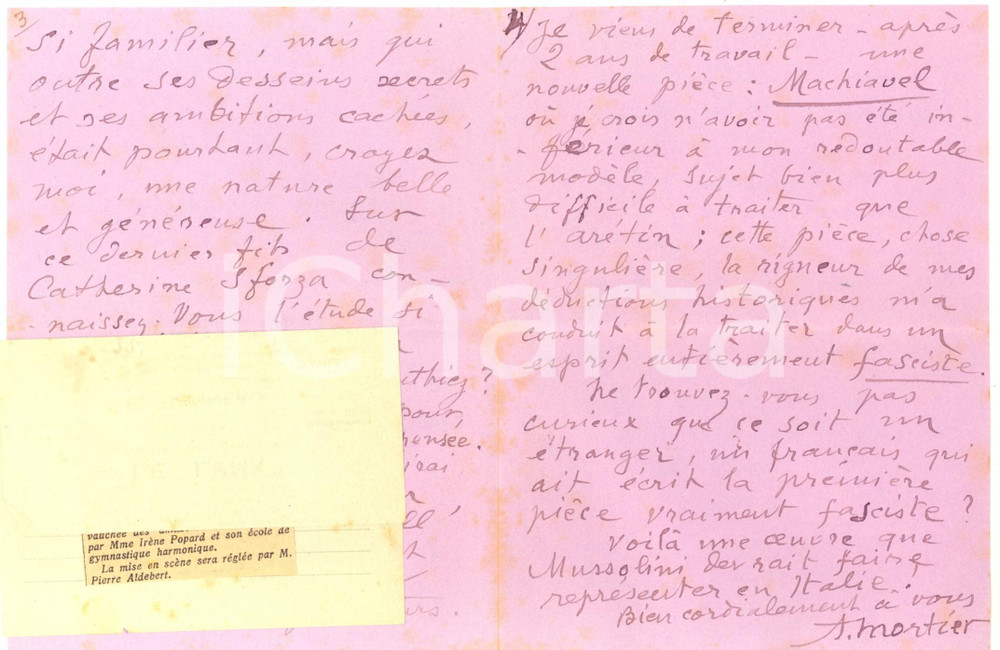 3
Si familier, mais qui
outre ses desseins secrets
et ses ambitions cachées,
était pourtant, croyez
moi, une nature belle
et généreuse. Sur
ce dernier fils de
Catherine Sforza con-
-naissez-vous l'étude si
uthiez?
pour
pensée.
irai
vauchée des
par Mme Irène Popard et son école de
gymnastique harmonique.
La mise en scène sera réglée par M.
Pierre Aldebert.
4/ Je viens de terminer - après
2 ans de travail - une
nouvelle pièce : Machiavel
où je crois n'avoir pas été in-
-férieur à mon redoutable
modèle, sujet bien plus
difficile à traiter que
l'arétin ; cette pièce, chose
singulière, la rigueur de mes
déductions historiques m'a
conduit à la traiter dans un
esprit entièrement fasciste.
Ne trouvez-vous pas
curieux que ce soit un
étranger, un français qui
ait écrit la première
pièce vraiment fasciste ?
Voilà une œuvre que
Mussolini devrait faire
représenter en Italie.
Bien cordialement à vous
A. Mortier
iCharta